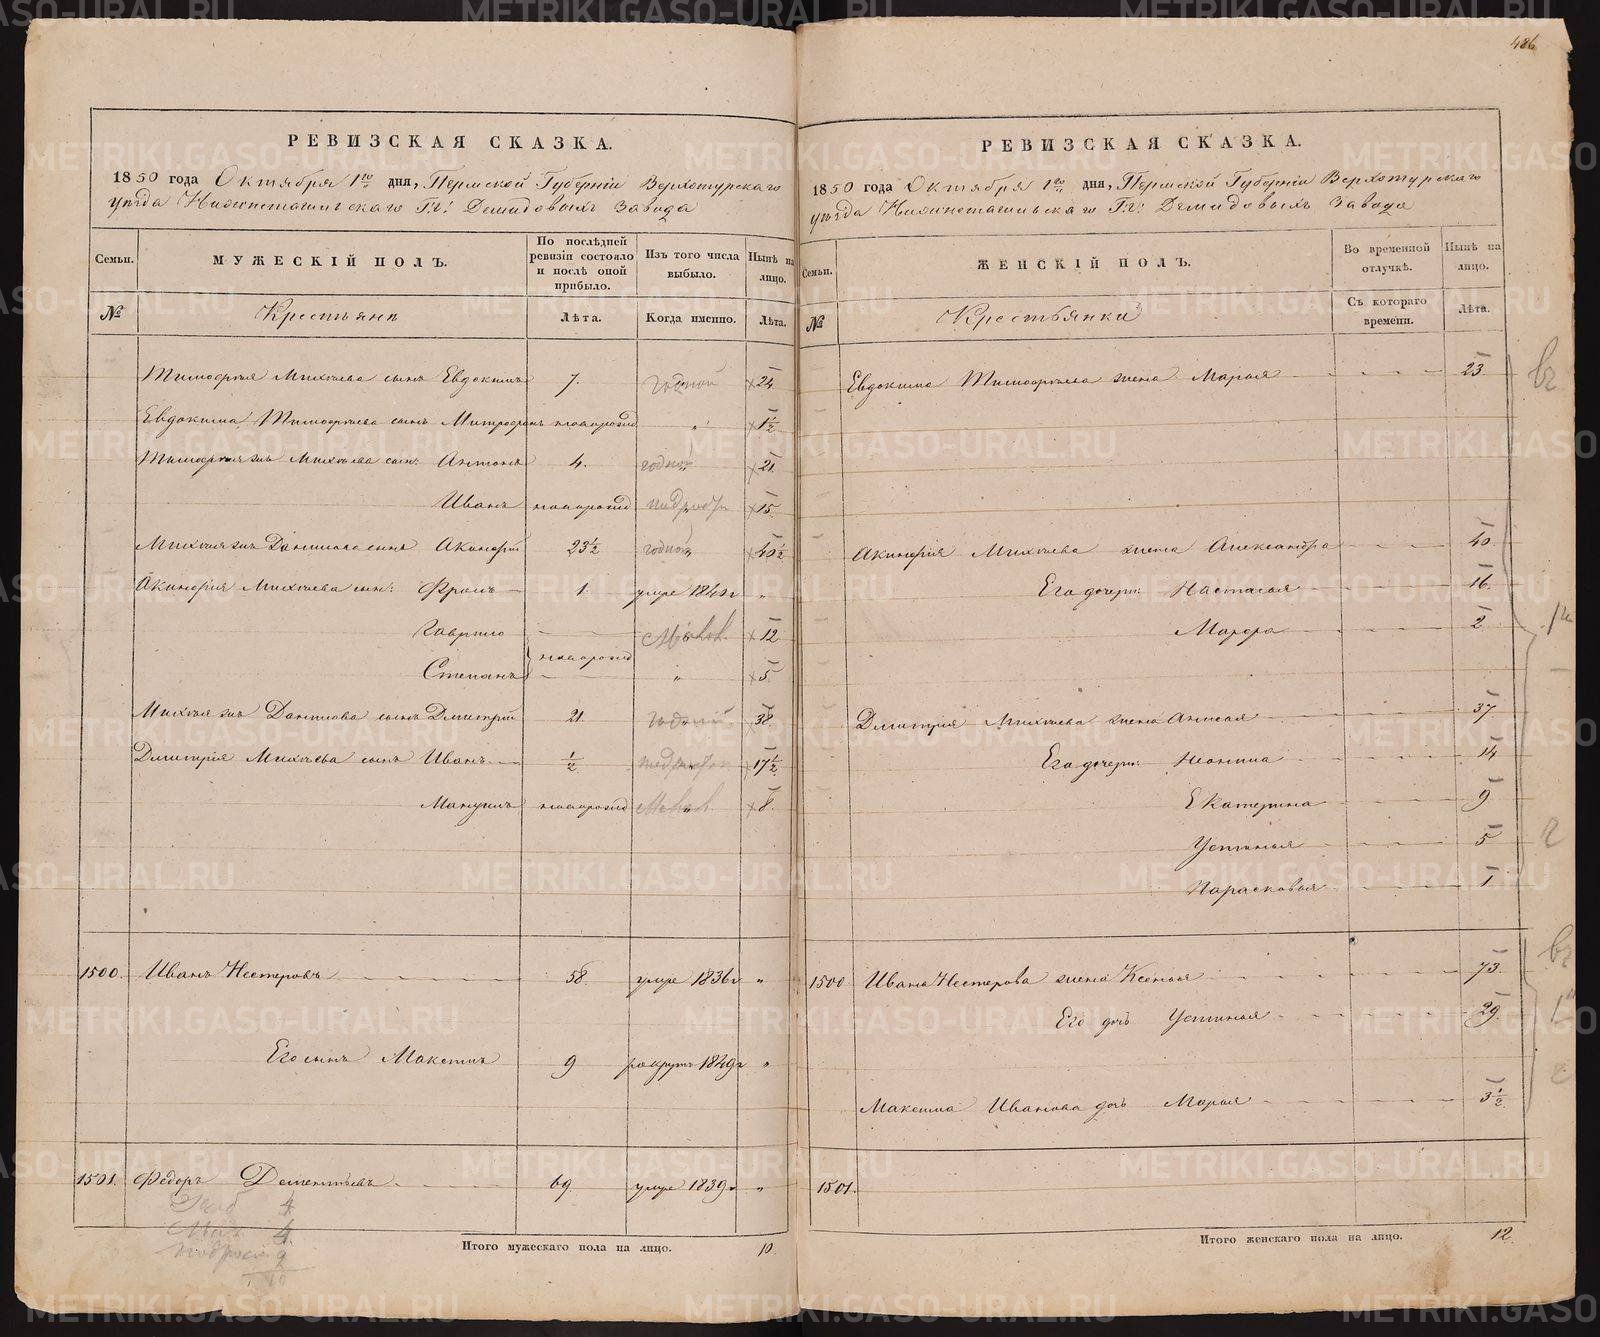 486
РЕВИЗСКАЯ СКАЗКА.
1850 года Октября 1го дня, Пермской Губернiи Верхотурскаго
уѣзда Нижнетагильскаго Г.г: Демидовыхъ Завода
Семьи. МУЖЕСКIЙ ПОЛЪ. По послѣдней ревизiи состояло и послѣ оной прибыло. Изъ того числа выбыло. Нынѣ на лицо.
№ Крестьяне Лѣта. Когда именно. Лѣта.
Тимофея Михѣева сынъ Евдокимъ 7. годной 24
Евдокима Тимофѣева сынъ Митрофанъ новорожд " 1½
Тимофея Михѣева сын: Антонъ 4. годной 21
Иванъ новорожд 15
Михѣя Данилова сынъ Акинфiй 23½ годной 40½
Акинфiя Михѣева сын: Фролъ 1. умре 1840г "
Гаврило новорожд 12
Степанъ " 5
Михѣя Данилова сынъ Дмитрiй 21. годной 38
Дмитрiя Михѣева сынъ Иванъ ½ 17½
Мануилъ новорожд 8.
1500. Иванъ Нестеровъ 58. умре 1836г "
Его сынъ Максимъ 9 рекрутъ 1849г "
1501. Федоръ Дементьевъ 69. умре 1839г "
4
4
2
10
Итого мужескаго пола на лицо. 10.
РЕВИЗСКАЯ СКАЗКА.
1850 года Октября 1го дня, Пермской Губернiи Верхотурскаго
уѣзда Нижнетагильскаго Г.г: Демидовыхъ Завода
Семьи. ЖЕНСКIЙ ПОЛЪ. Во временной отлучкѣ. Нынѣ на лицо.
№ Крестьянки Съ котораго времени. Лѣта.
Евдокима Тимофѣева жена Марья 23
Акинфiя Михѣева жена Александра 40
Его дочери: Настасья 16
Марфа 2
Дмитрiя Михѣева жена Анисья 37
Его дочери: Неонила 14
Екатерина 9
Устинья 5
Парасковья 1
1500 Ивана Нестерова жена Ксенья 73
Его дочь Устинья 29
Максима Иванова дочь Марья 3½
1501.
Итого женскаго пола на лицо. 12.
METRIKI.GASO-URAL.RU